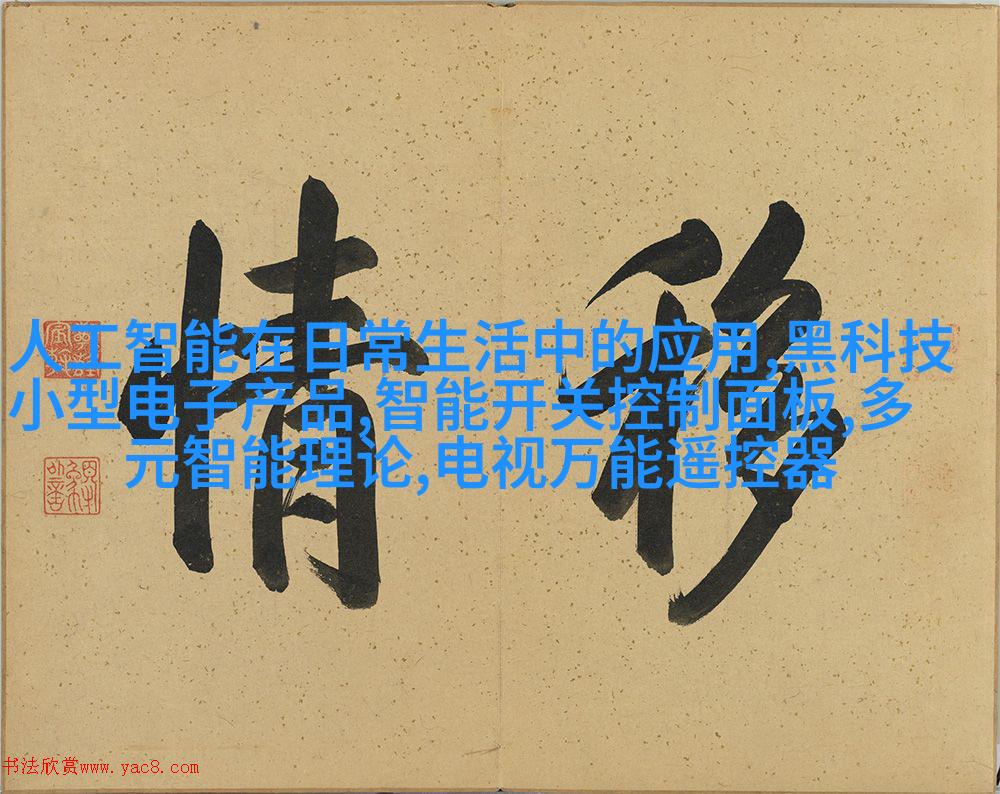 移情
人工智能在日常生活中的应用,黑科技
小型电子产品,智能开关控制面板,多
元智能理论,电视万能遥控器
书法欣赏www.yac8.com